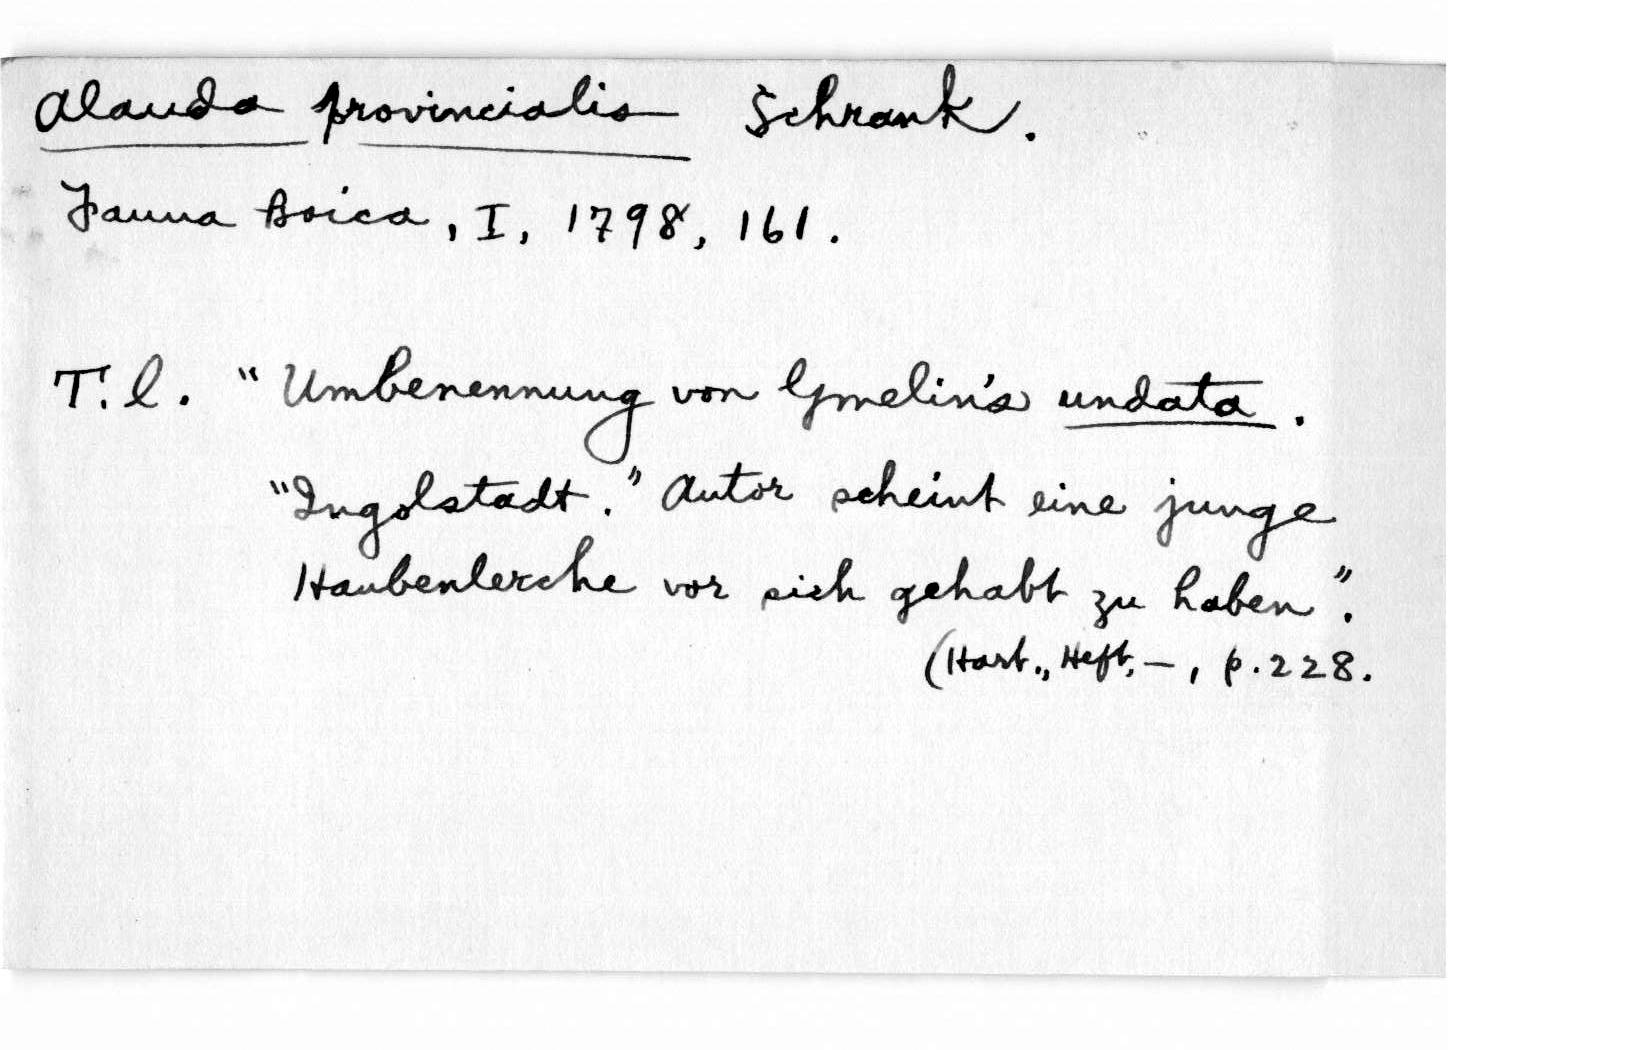 Alauda provincialis Schrank.
Fauna Boica, I, 1798, 161.
T. l. "Umbenennung von Gmelin's undata.
"Ingolstadt." Autor scheint eine junge
Haubenlerche vor sich gehabt zu haben".
(Hart., Heft, —, p. 228.